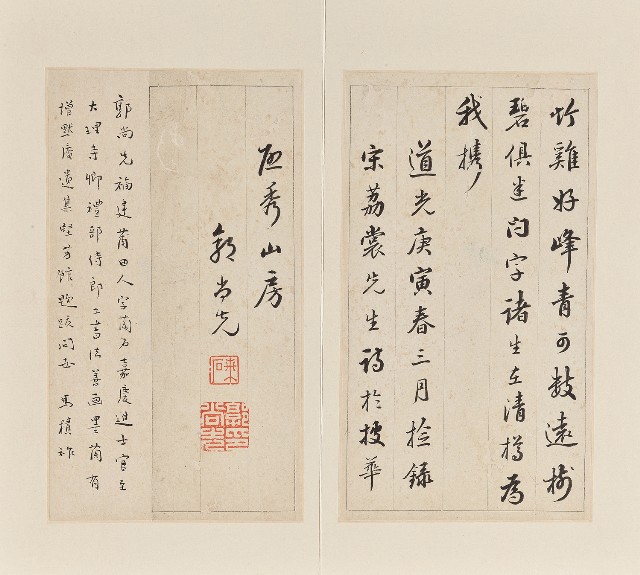 竹雞好峰青可數遠樹
碧俱迷問字諸生在清樽為
我攜
道光庚寅春三月撿錄
宋荔裳先生詩於華
秀山房
郭尚先
郭尚先福建莆田人字蘭石嘉慶進士官至
大理寺卿禮部侍郎工書法善画墨蘭有
增默庵遺集堅芳館題跋問世 馬積祚